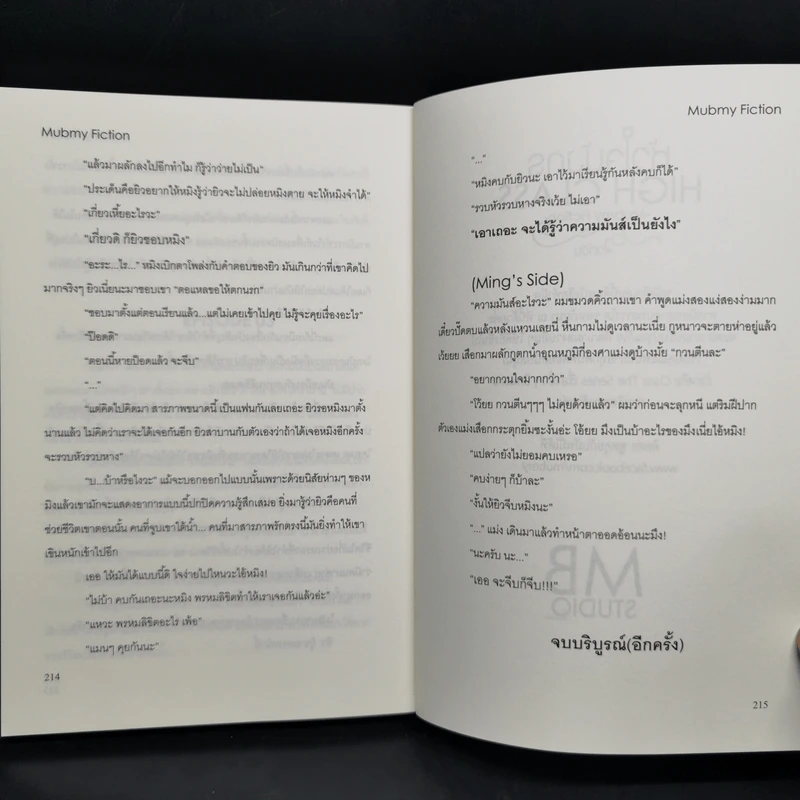 Mubmy Fiction
"แล้วมาผลักลงไปอีกทำไม ก็รู้ว่าว่ายไม่เป็น"
"ประเด็นคือยิวอยากให้หมิงรู้ว่ายิวจะไม่ปล่อยหมิงตาย จะให้หมิงจำได้"
"เกี่ยวเหี้ยอะไรวะ"
"เกี่ยวดิ ก็ยิวชอบหมิง"
"อะระ...ไร..." หมิงเบิกตาโพล่งกับคำตอบของยิว มันเกินกว่าที่เขาคิดไป
มากจริงๆ ยิวเนี่ยนะมาชอบเขา "ตอแหลขอให้ตกนรก"
"ชอบมาตั้งแต่ตอนเรียนแล้ว...แต่ไม่เคยเข้าไปคุย ไม่รู้จะคุยเรื่องอะไร"
"ป๊อดดิ"
"ตอนนี้หายป๊อดแล้ว จะจีบ"
"..."
"แต่คิดไปคิดมา สารภาพขนาดนี้ เป็นแฟนกันเลยเถอะ ยิวรอหมิงมาตั้ง
นานแล้ว ไม่คิดว่าเราจะได้เจอกันอีก ยิวสาบานกับตัวเองว่าถ้าได้เจอหมิงอีกครั้ง
จะรวบหัวรวบหาง"
"บ...บ้าหรือไงวะ" แม้จะบอกออกไปแบบนั้นเพราะด้วยนิสัยห่ามๆ ของห
มิงแล้วเขามักจะแสดงอาการแบบนี้ปกปิดความรู้สึกเสมอ ยิ่งมารู้ว่ายิวคือคนที่
ช่วยชีวิตเขาตอนนั้น คนที่จูบเขาใต้น้ำ... คนที่มาสารภาพรักตรงนี้มันยิ่งทำให้เขา
เขินหนักเข้าไปอีก
เออ ให้มันได้แบบนี้ดิ ใจง่ายไปไหนวะไอ้หมิง!
"ไม่บ้า คบกันเถอะนะหมิง พรหมลิขิตทำให้เราเจอกันแล้วอ่ะ"
"แหวะ พรหมลิขิตอะไร เพ้อ"
"แมนๆ คุยกันนะ"
214
Mubmy Fiction
"..."
"หมิงคบกับยิวนะ เอาไว้มาเรียนรู้กันหลังคบก็ได้"
"รวบหัวรวบหางจริงเว้ย ไม่เอา"
"เอาเถอะ จะได้รู้ว่าความมันส์เป็นยังไง"
(Ming's Side)
"ความมันส์อะไรวะ" ผมขมวดคิ้วถามเขา คำพูดแม่งสองแง่สองง่ามมาก
เดี๋ยวปั๊ดตบแล้วหลังแหวนเลยนี่ หื่นกามไม่ดูเวลานะเนี่ย กูหนาวจะตายห่าอยู่แล้ว
เว้ยยย เสือกมาผลักกูตกน้ำอุณหภูมิกี่องศาแม่งดูบ้างมั้ย "กวนตีนละ"
"อยากกวนใจมากกว่า"
"โว้ยย กวนตีนๆๆๆ ไม่คุยด้วยแล้ว" ผมว่าก่อนจะลุกหนี แต่ริมฝีปาก
ตัวเองแม่งเสือกกระตุกยิ้มซะงั้นอ่ะ โอ้ยย มึงเป็นบ้าอะไรของมึงเนี่ยไอ้หมิง!
"แปลว่ายังไม่ยอมคบเหรอ"
"คบง่ายๆ ก็บ้าละ"
"งั้นให้ยิวจีบหมิงนะ"
"..." แม่ง เดินมาแล้วทำหน้าตาออดอ้อนนะมึง!
"นะครับ นะ..."
"เออ จะจีบก็จีบ!!!"
จบบริบูรณ์(อีกครั้ง)
215